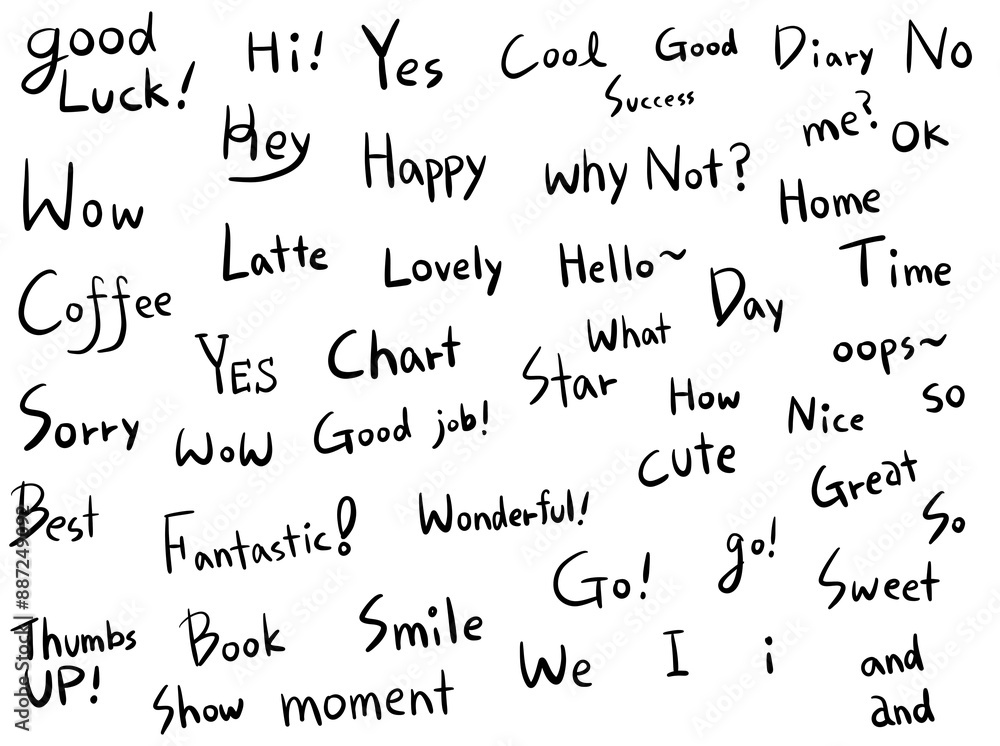 good
Luck!
Hi!
Yes
Cool
Good
Diary
No
Success
Hey
me?
OK
Happy
why Not?
Wow
Home
Latte
Lovely
Hello~
Time
Coffee
Day
What
YES
Chart
oops~
Star
How
so
Sorry
Wow
Good job!
Nice
cute
Great
Best
Fantastic!
Wonderful!
So
Go!
go!
Sweet
Thumbs
UP!
Book
Smile
We
I
i
and
Show
moment
and
Adobe Stock | #887249092